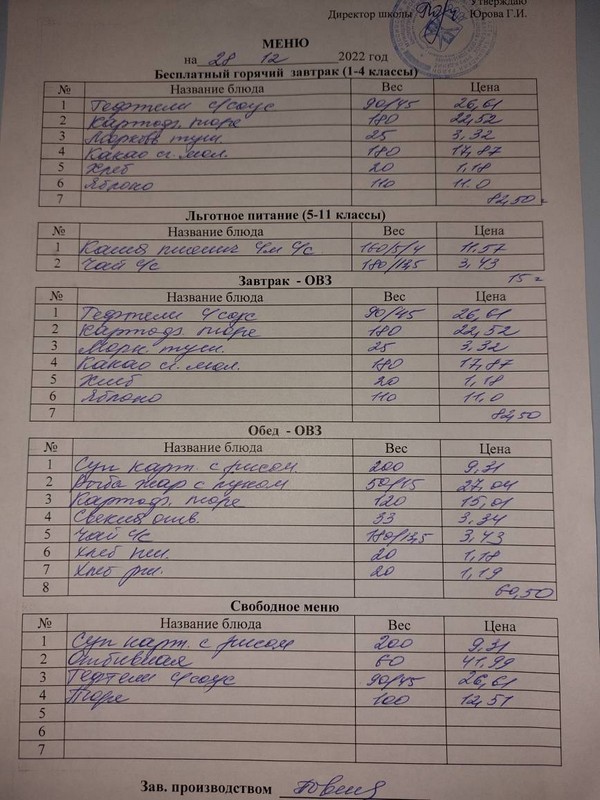 Утверждаю
Директор школы Юрова Г.И.
МЕНЮ
на 28 12 2022 год
Бесплатный горячий завтрак (1-4 классы)
№ Название блюда Вес Цена
1 Тефтели с/соус 90/45 26,61
2 Картоф. пюре 180 22,52
3 Морковь туш. 25 3,32
4 Какао сг. мол. 180 17,87
5 Хлеб 20 1,18
6 Яблоко 110 11.0
7 82,50
Льготное питание (5-11 классы)
№ Название блюда Вес Цена
1 Каша пшенич ч/м ч/с 160/5/4 11.57
2 Чай ч/с 180/13,5 3,43
Завтрак - ОВЗ 15
№ Название блюда Вес Цена
1 Тефтели с/соус 90/45 26,61
2 Картоф. пюре 180 22,52
3 Морк. туш. 25 3.32
4 Какао сг. мол. 180 17,87
5 Хлеб 20 1,18
6 Яблоко 110 11.0
7 82,50
Обед - ОВЗ
№ Название блюда Вес Цена
1 Суп карт. с рисом 200 9,31
2 Рыба жар с луком 50/15 27,04
3 Картоф. пюре 120 15,01
4 Свекла отв. 33 3,34
5 Чай ч/с 180/13,5 3,43
6 Хлеб пш. 20 1,18
7 Хлеб рж. 20 1,19
8 60,50
Свободное меню
№ Название блюда Вес Цена
1 Суп карт. с рисом 200 9,31
2 Отбивная 60 41,99
3 Тефтели с/соус 90/45 26,61
4 Пюре 100 12,51
5
6
7
Зав. производством